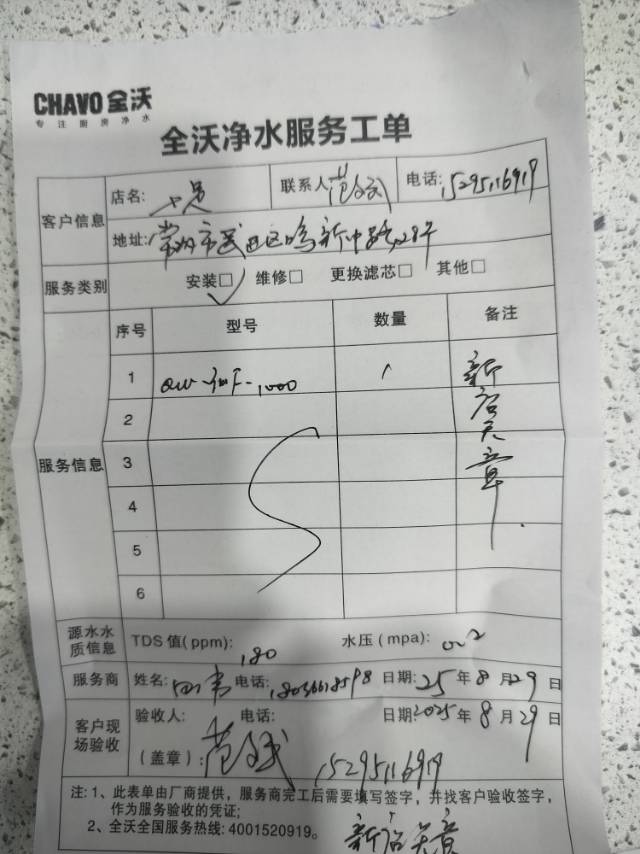 CHAVO 全沃
专注厨房净水
全沃净水服务工单
客户信息 店名: 联系人 范文斌 电话: 15295116919
地址: 常州市武进区鸣新中路28号
服务类别 安装□ 维修□ 更换滤芯□ 其他□
服务信息 序号 型号 数量 备注
1 1 新店无章
2
3
4
5
6
源水水质信息 TDS 值(ppm): 180 水压(mpa): 0.2
服务商 姓名: 电话: 日期: 25 年 8 月 29 日
客户现场验收 验收人: 电话: 日期: 2025 年 8 月 29 日
(盖章): 范文斌 15295116919
注: 1、此表单由厂商提供，服务商完工后需要填写签字，并找客户验收签字，
作为服务验收的凭证;
2、全沃全国服务热线: 4001520919。 新店无章